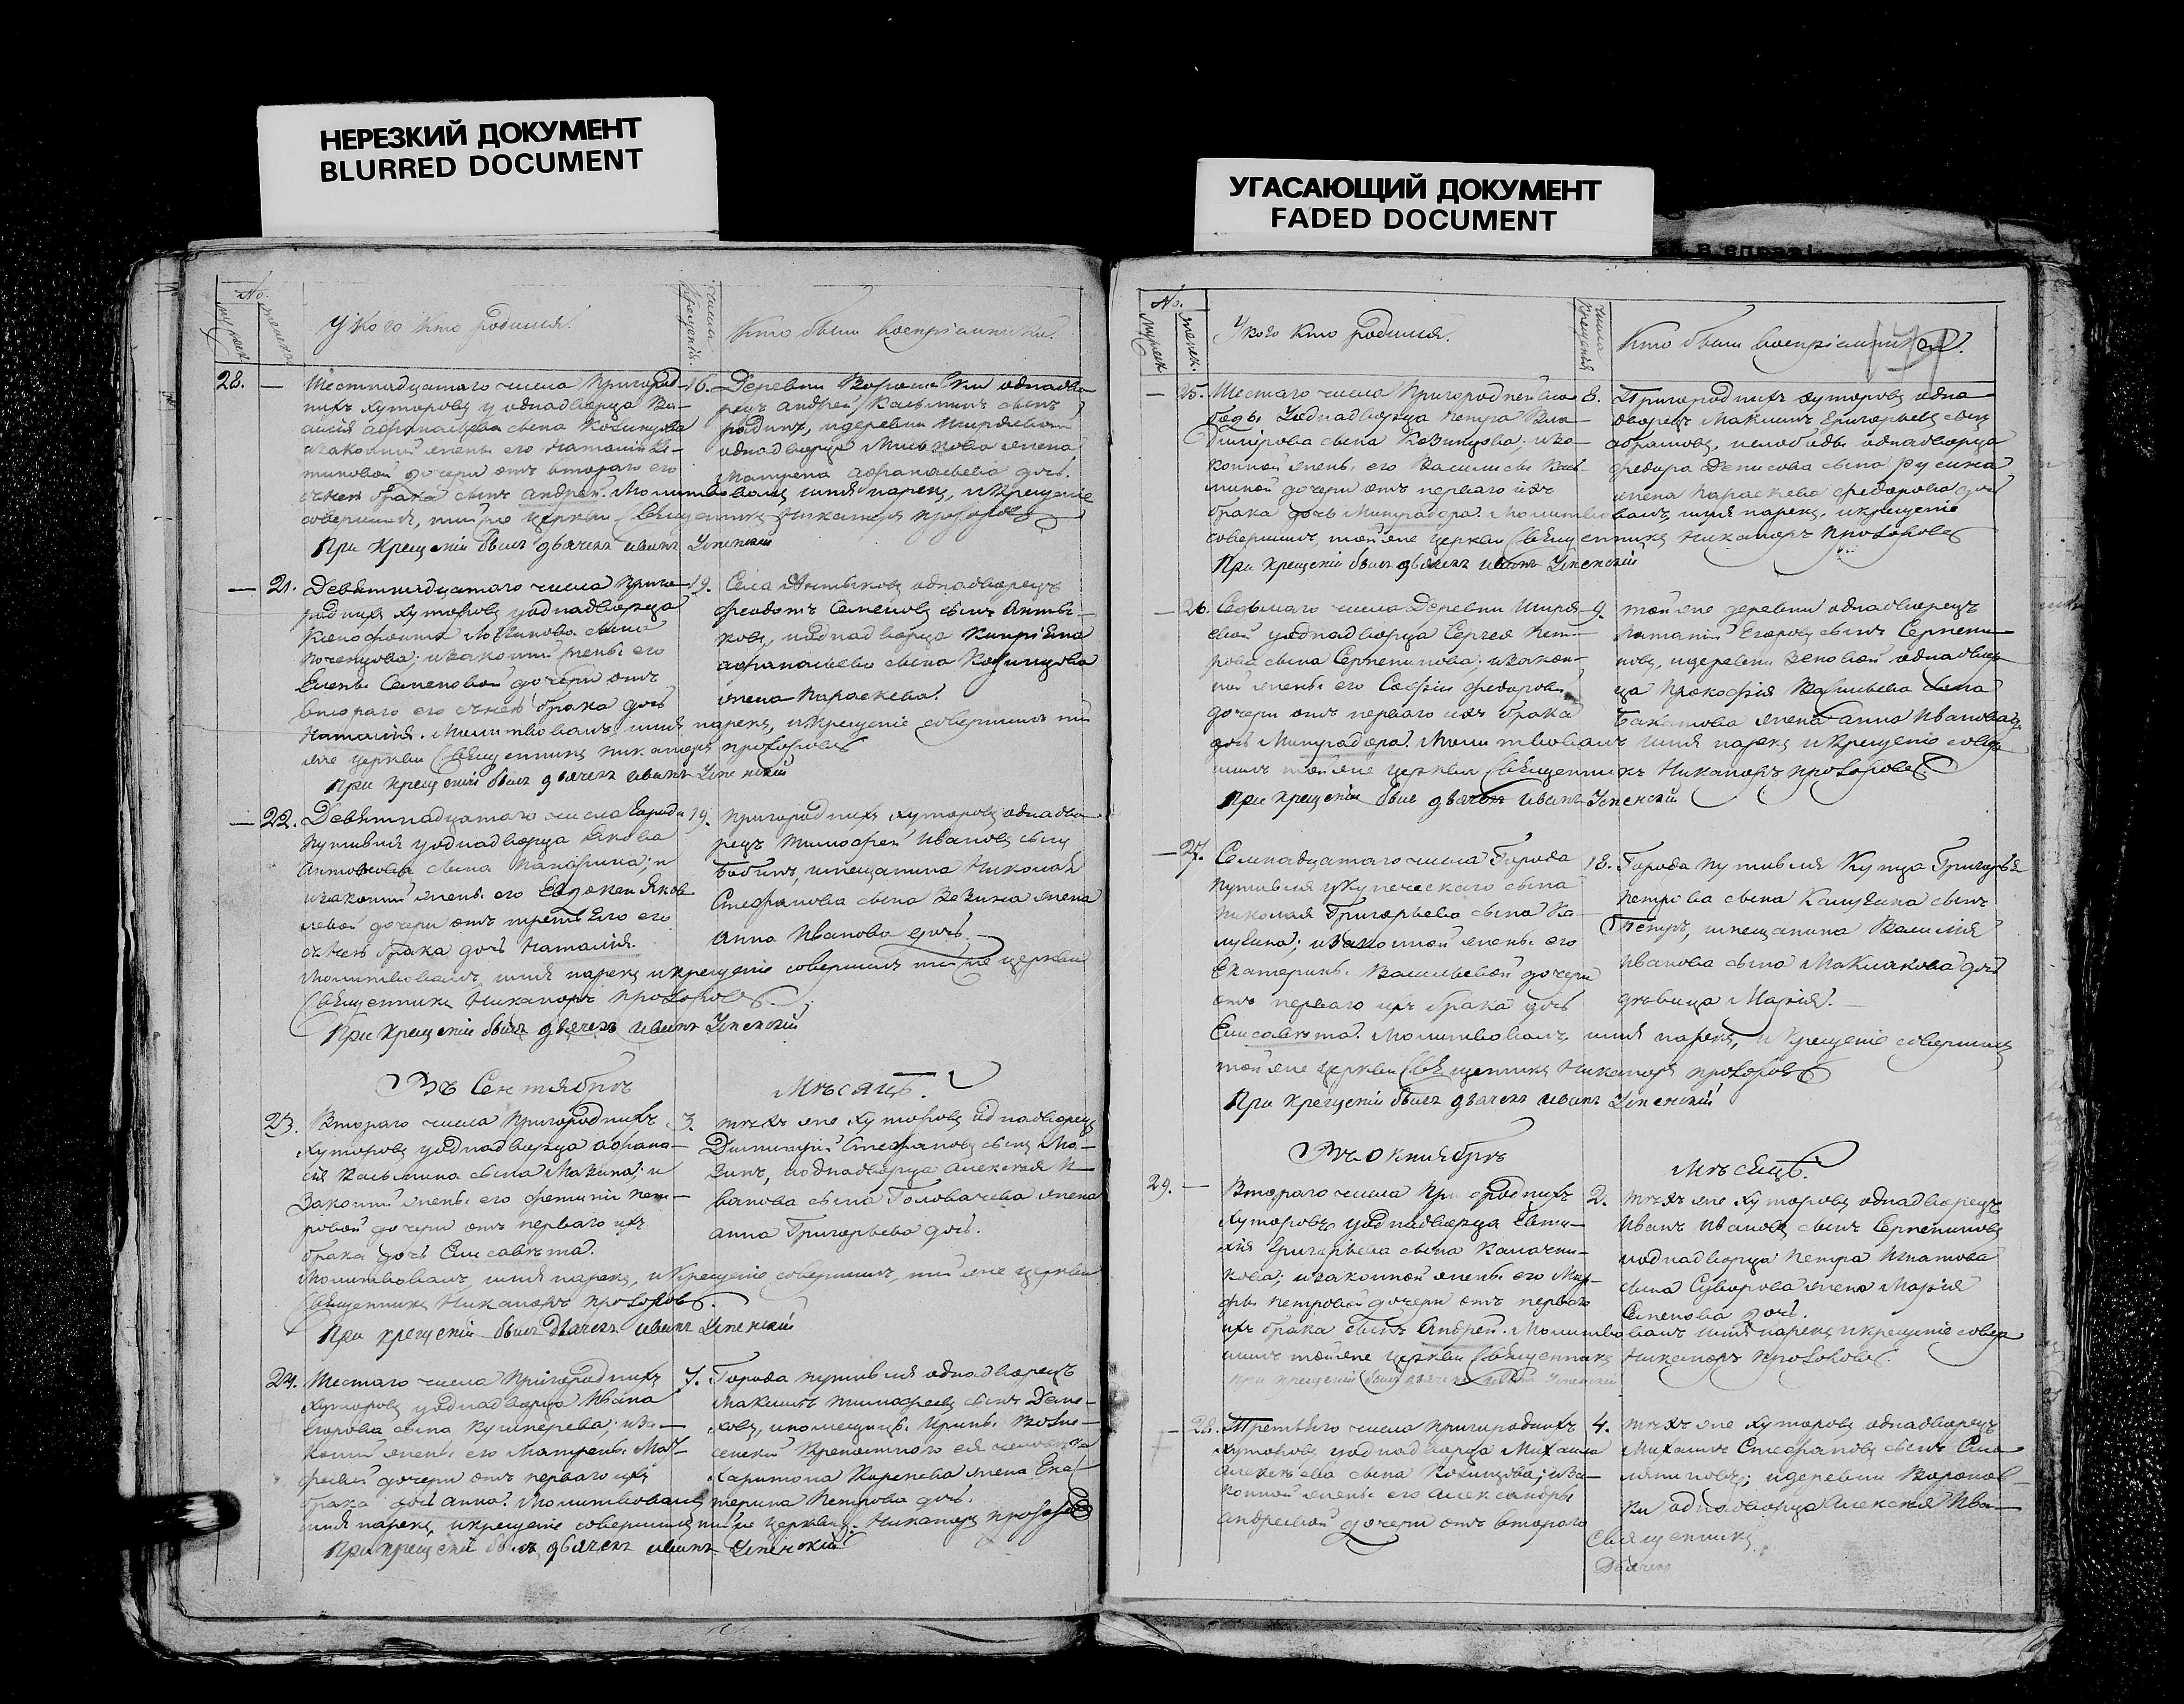 НЕРЕЗКИЙ ДОКУМЕНТ
BLURRED DOCUMENT
№
У кого кто родился.
числа крещенія
Кто были воспріемники.
28. — Шестнадцатаго числа Пригород-
нихъ хуторовъ у однадворца Ва-
силія Афанасьева сына Козинцова
и законной жены его Наталіи
дочери отъ втораго его
съ нею брака сынъ Андрей. Молитвовалъ имя нарекъ, и крещеніе
совершилъ, той же церкви Священникъ Никаноръ Прозоровъ
При крещеніи былъ дьячекъ Иванъ Успенскій
16. Деревни однадво-
рецъ Андрей Касьминъ сынъ
однадворца жена
Матрена Афанасьева дочь.
— 21. Девятнадцатаго числа Приго-
роднихъ хуторовъ у однадворца
Ксенофонта Логвинова сына
Почепцова; и законной жены его
Елены Семеновой дочери отъ
втораго его съ нею брака дочь
Наталія. Молитвовалъ имя нарекъ, и крещеніе совершилъ той
же церкви Священникъ Никаноръ Прозоровъ
При крещеніи былъ дьячекъ Иванъ Успенскій
19. Села однадворецъ
Феодотъ Семеновъ сынъ Анты-
ковъ, и однадворца Кипріяна
Афанасьева сына Козинцова
жена Параскева.
— 22. Девятнадцатаго числа Города
Путивля у однадворца Якова
Антонова сына
и законной жены его Евдокеи Яков-
левой дочери отъ третьяго его
съ нею брака дочь Наталія.
Молитвовалъ, имя нарекъ и крещеніе совершилъ той же церкви
Священникъ Никаноръ Прозоровъ.
При крещеніи былъ дьячекъ Иванъ Успенскій
19. Пригороднихъ хуторовъ однадво-
рецъ Тимофей Ивановъ сынъ
Бобинъ, и мещанина Николая
Стефанова сына Зевина жена
Анна Иванова дочь.
Въ Сентябрѣ Мѣсяцѣ.
23. Втораго числа Пригороднихъ
хуторовъ у однадворца Афана-
сія Касьмина сына Мазина; и
законной жены его Фетиніи Пет-
ровой дочери отъ перваго ихъ
брака дочь Елисавѣта.
Молитвовалъ, имя нарекъ, и крещеніе совершилъ, той же церкви
Священникъ Никаноръ Прозоровъ.
При крещеніи былъ дьячекъ Иванъ Успенскій
3. тѣхъ же хуторовъ однадворецъ
Димитрій Стефановъ сынъ Ма-
зинъ, и однадворца Алексѣя И-
ванова сына Головачева жена
Анна Григорьева дочь.
24. Шестаго числа Пригороднихъ
хуторовъ у однадворца Ивана
Егорова сына Кушнерева; и за-
конной жены его Матрены Мат-
феевой дочери отъ перваго ихъ
брака дочь Анна. Молитвовалъ
имя нарекъ, и крещеніе совершилъ той же церкви. Никаноръ Прозоровъ
При крещеніи былъ дьячекъ Иванъ Успенскій
7. Города Путивля однадворецъ
Максимъ Тимофеевъ сынъ
и помещицы Ирины Возне-
сенской крепостного ея человека
Харитона Коренева жена Ека-
терина Петрова дочь.
УГАСАЮЩИЙ ДОКУМЕНТ
FADED DOCUMENT
№
У кого кто родился.
числа крещенія
Кто были воспріемники.
— 25. Шестаго числа Пригородней Сло-
боды у однадворца Петра
сына Козинцова; и за-
конной жены его Василисы
дочери отъ перваго ихъ
брака дочь Митрадора. Молитвовалъ, имя нарекъ, и крещеніе
совершилъ, той же церкви Священникъ Никаноръ Прозоровъ
При крещеніи былъ дьячекъ Иванъ Успенскій
8. Пригороднихъ хуторовъ одно-
дворецъ Максимъ Григорьевъ сынъ
Абрамовъ, и слободы однадворца
Федора Денисова сына Русина
жена Параскева Федорова дочь
— 26. Седьмаго числа Деревни Ширя-
евой у однадворца Сергея Пет-
рова сына Серпенинова; и закон-
ной жены его Софіи Федоровой
дочери отъ перваго ихъ брака
дочь Митрадора. Молитвовалъ имя нарекъ и крещеніе совер-
шилъ той же церкви Священникъ Никаноръ Прозоровъ
При крещеніи былъ дьячекъ Иванъ Успенскій
9. той же деревни однадворецъ
Егоровъ сынъ Серпени-
новъ, и деревни Зеновой однадвор-
ца Прокофія Васильева сына
Бакатова жена Анна Иванова д.
— 27. Семнадцатаго числа Города
Путивля у Купеческаго сына
Николая Григорьева сына Ка-
лугина; и законной жены его
Екатерины Васильевой дочери
отъ перваго ихъ брака дочь
Елисавѣта. Молитвовалъ, имя нарекъ, и крещеніе совершилъ
той же церкви Священникъ Никаноръ Прозоровъ
При крещеніи былъ дьячекъ Иванъ Успенскій
18. Города Путивля Купца Григорья
Петрова сына Калугина сынъ
Петръ, и мещанина Василія
Иванова сына Маклакова дочь
дѣвица Марія.
Въ Октябрѣ Мѣсяцѣ.
29. — Втораго числа Пригороднихъ
хуторовъ у однадворца Евти-
хія Григорьева сына Калачни-
кова; и законной жены его Мар-
фы Петровой дочери отъ перваго
ихъ брака сынъ Андрей. Молитвовалъ имя нарекъ и крещеніе совер-
шилъ той же церкви Священникъ Никаноръ Прозоровъ.
При крещеніи былъ дьячекъ Иванъ Успенскій
2. тѣхъ же хуторовъ однадворецъ
Иванъ Ивановъ сынъ Серпениновъ
и однадворца Петра Игнатова
сына Суворова жена Марія
Семенова дочь.
— 28. Третьяго числа Пригороднихъ
хуторовъ у однадворца Михаила
Алексѣева сына Козинцова; и за-
конной жены его Александры
Андреевой дочери отъ втораго
4. тѣхъ же хуторовъ однадворецъ
Михаилъ Стефановъ сынъ
и деревни Воронов-
ки однадворца Алексѣя Ива-
Священникъ
Дьячекъ